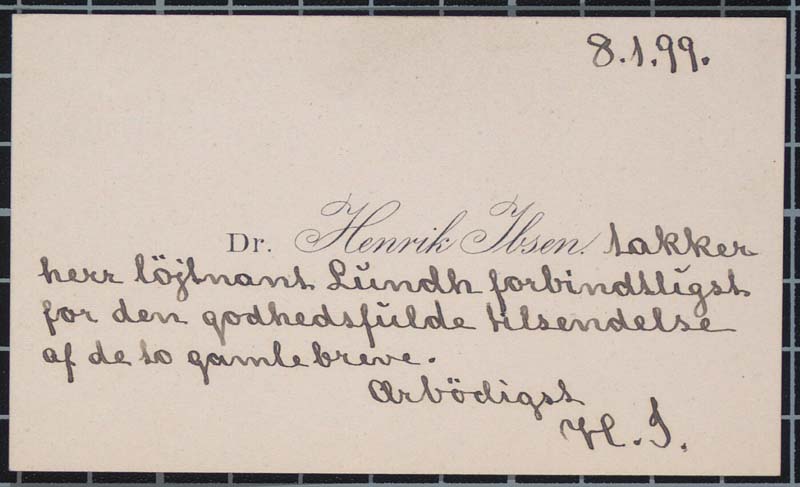 8.1.99.
Dr. Henrik Ibsen. takker
herr löjtnant Lundh forbindtligst
for den godhedsfulde tilsendelse
af de to gamle breve.
Ærbödigst
H. I.